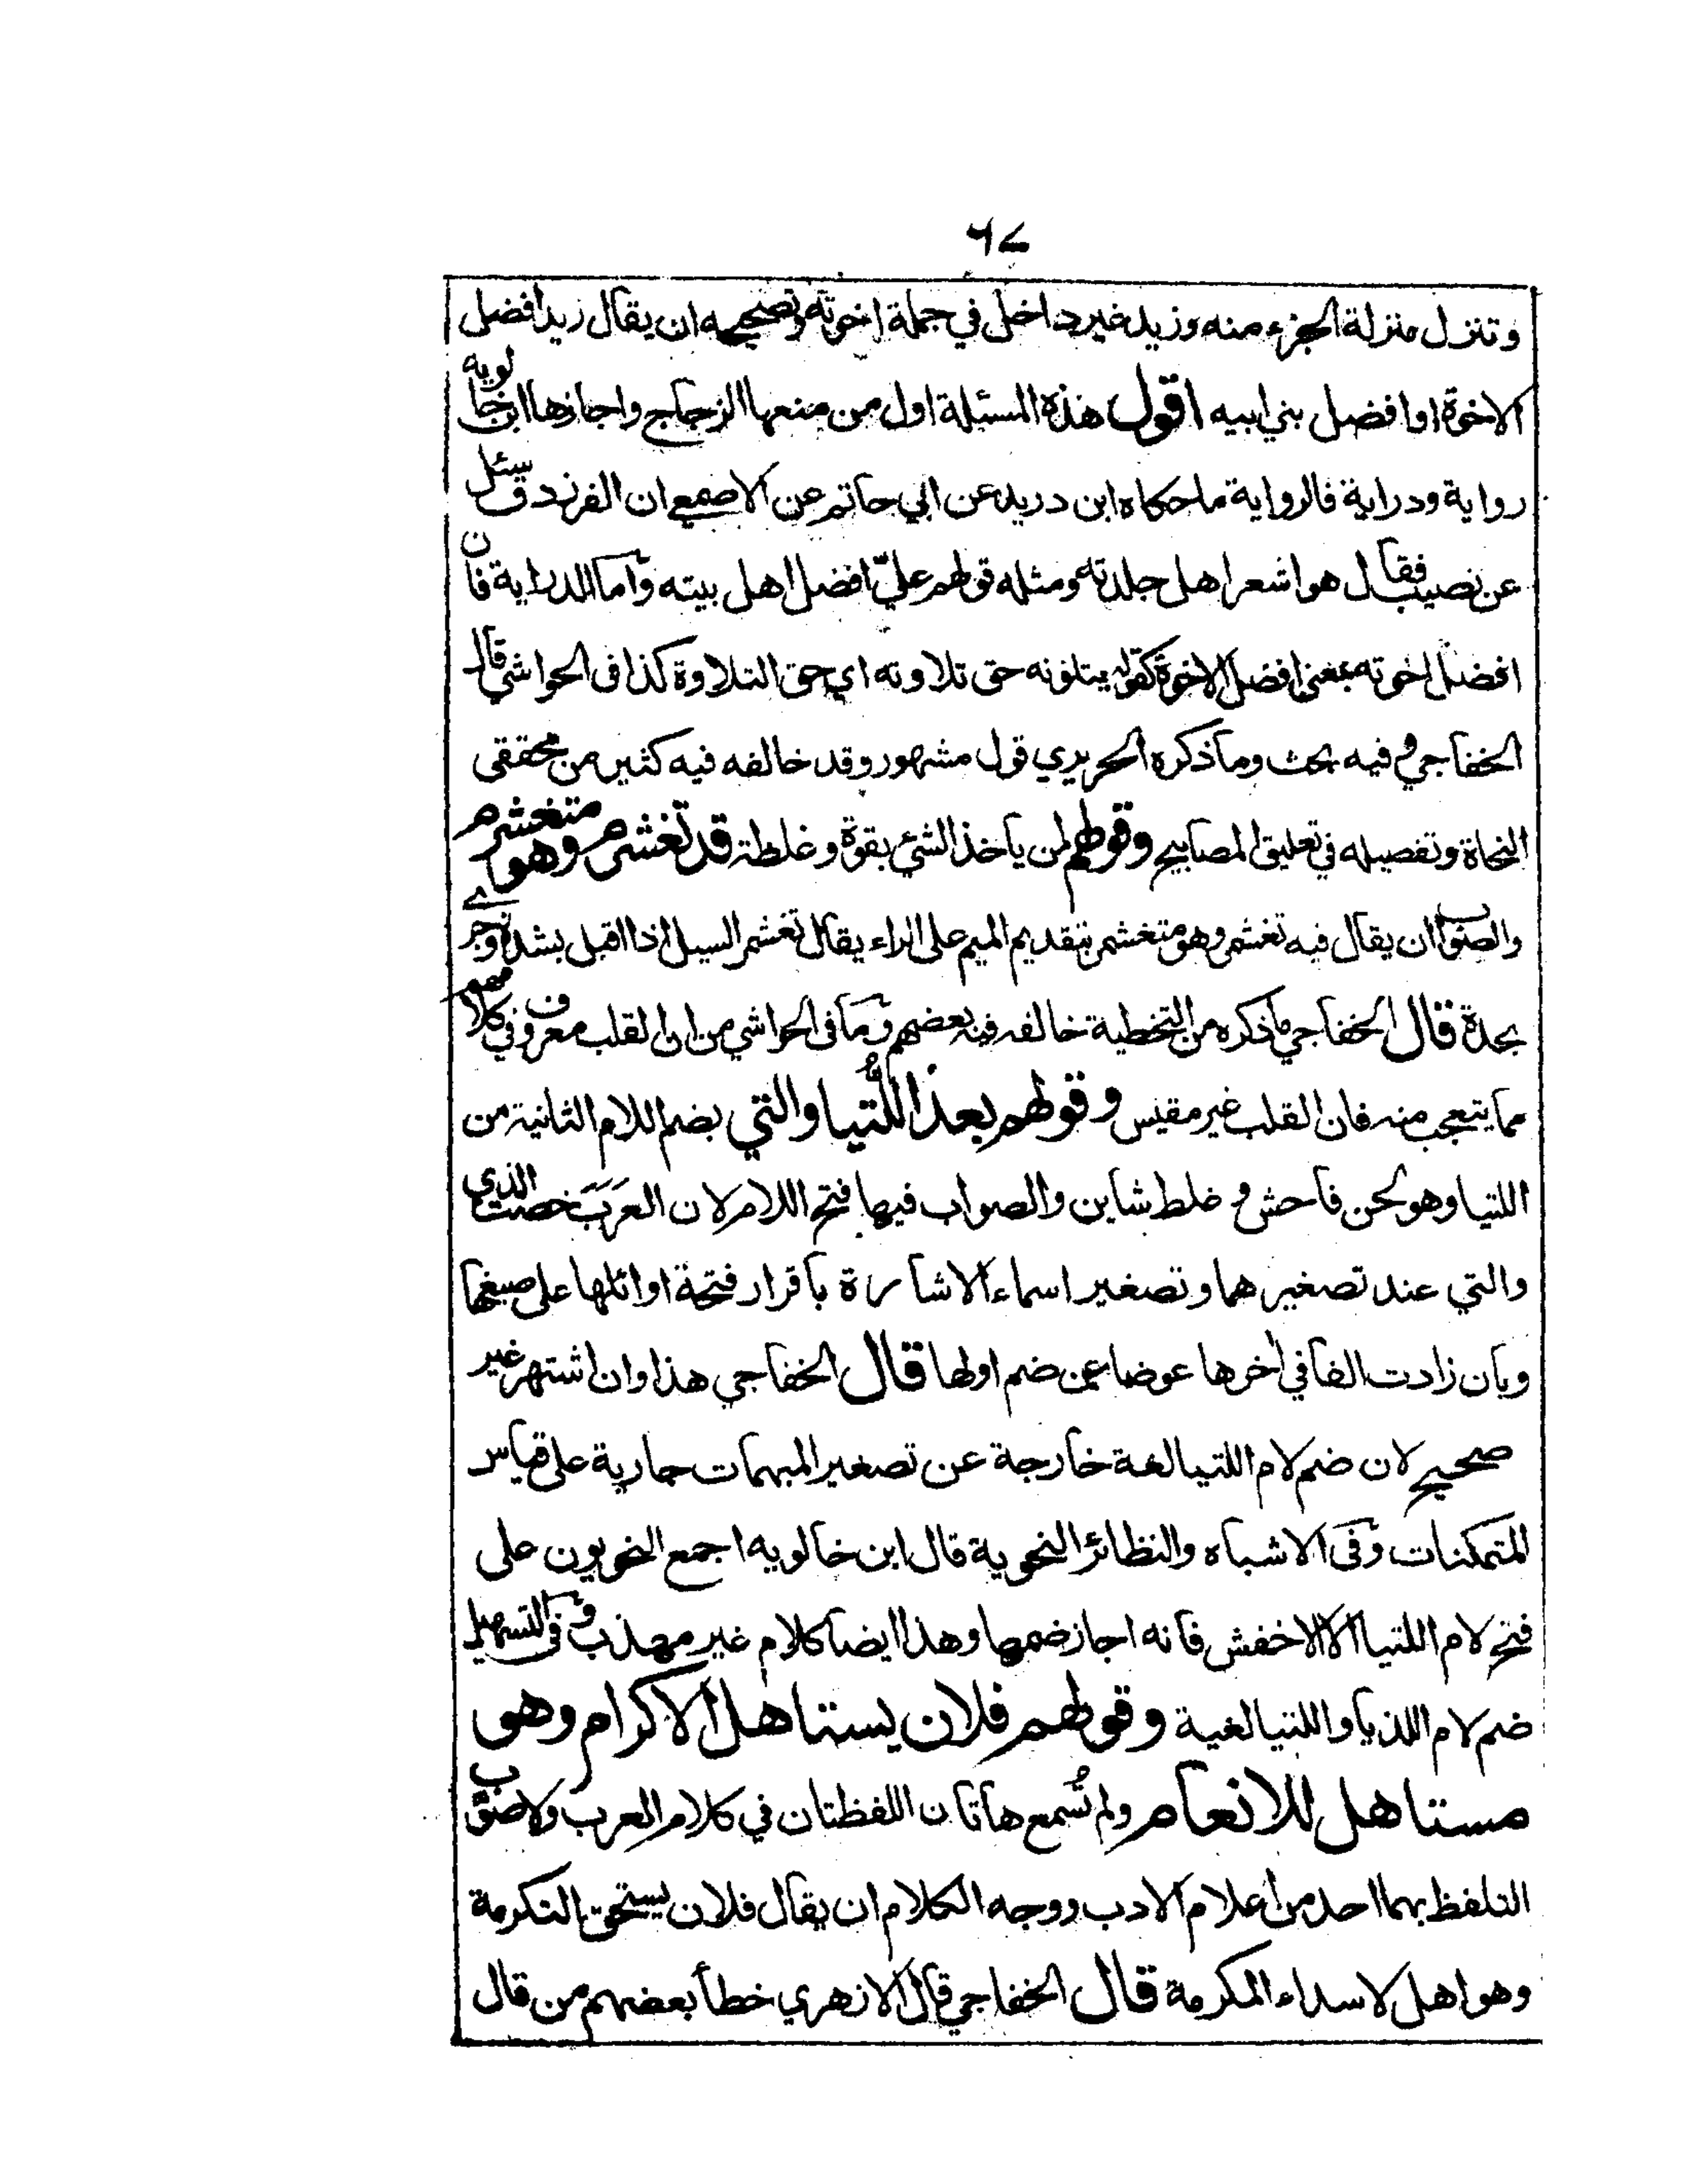 ٦٧
وتنزل منزلة الجزء منه وزيد غير داخل في جملة اخوته وتصحيحه ان يقال زيد افضل
الاخوة او افضل بني ابيه اقول هذه المسئلة اول من منعها الزجاج واجازها ابن خالويه
رواية ودراية فالرواية ما حكاه ابن دريد عن ابي حاتم عن الاصمعي ان الفرزدق سئل
عن نصيب فقال هو اشعر اهل جلدته ومثله قولهم عليّ افضل اهل بيته واما الدراية فان
افضل اخوته بمعنى افضل الاخوة كقوله يتلونه حق تلاوته اي حق التلاوة كذا فى الحواشي قال
الخفاجي وفيه بحث وما ذكره الحريري قول مشهور وقد خالفه فيه كثير من محققى
النحاة وتفصيله في تعليق المصابيح وقولهم لمن ياخذ الشئ بقوة وغلظة قد تغشرم وهو متغشرم
والصواب ان يقال فيه تغشمر وهو متغشمر بتقديم الميم على الراء يقال تغشمر السيل اذا اقبل بشدة وجرى
بحدة قال الخفاجي ما ذكره من التخطية خالفه فيه بعضهم وما فى الحواشي من ان القلب معروف في كلامهم
مما يتعجب منه فان القلب غير مقيس وقولهم بعد اللُّتيا والتي بضم اللام الثانية من
اللتيا وهو لحن فاحش و غلط شاين والصواب فيها فتح اللام لان العَرَبَ خصت الذي
والتي عند تصغيرهما وتصغير اسماء الاشارة باقرار فتحة اوائلها على صيغها
وبان زادت الفا في اخرها عوضا عن ضم اولها قال الخفاجي هذا وان اشتهر غير
صحيح لان ضم لام اللتيا لغة خارجة عن تصغير المبهمات جارية على قياس
المتمكنات وفى الاشباه والنظائر النحوية قال ابن خالويه اجمع النحويون على
فتح لام اللتيا الا الاخفش فانه اجاز ضمها وهذا ايضا كلام غير مهذب وفى التسهيل
ضم لام اللذيا واللتيا لغية وقولهم فلان يستاهل الاكرام وهو
مستاهل للانعام ولم تُسمع هاتان اللفظتان في كلام العرب ولا صوّب
التلفظ بهما احد من اعلام الادب ووجه الكلام ان يقال فلان يستحق التكرمة
وهو اهل لاسداء المكرمة قال الخفاجي قال الازهري خطأ بعضهم من قال